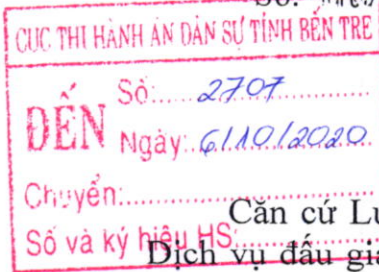 CỤC THI HÀNH ÁN DÂN SỰ TỈNH BẾN TRE
ĐẾN
Số: 2707
Ngày: 6/10/2020
Chuyển:
Căn cứ Lu
Số và ký hiệu HS:
Dịch vụ đấu giá